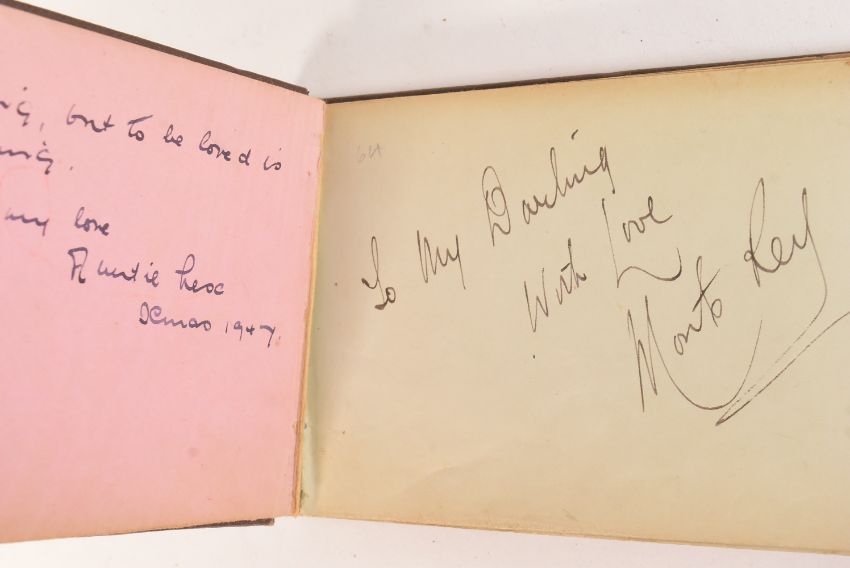 but to be loved is
my love
Auntie
Xmas 1947.
64
To My Darling
With Love
Monte Rey